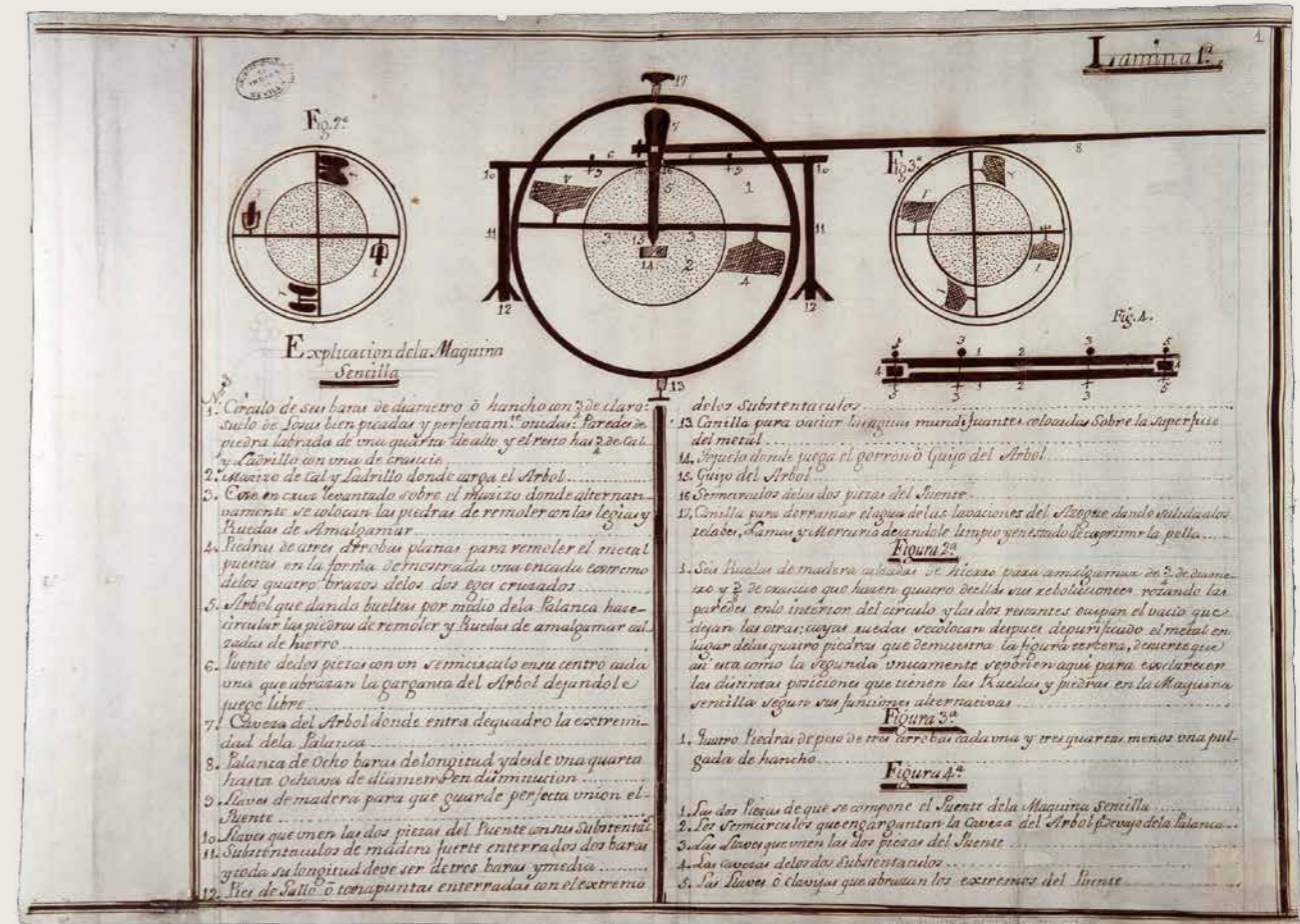 Lamina 1ª.
1
Fig. 2ª
Fig. 3ª
Fig. 4.
Explicacion dela Maquina
Sencilla
N.s
1. Circulo de seis baras de diametro ò hancho con 3/4 de claro:
suelo de Losas bien picadas y perfectam.te unidas: Paredes de
piedra labrada de una quarta de alto y el resto has.ta de Cal
y Ladrillo con una de crasicie
2. Masizo de Cal y Ladrillo donde carga el Arbol
3. Exe en cruz levantado sobre el masizo donde alternati-
vamente se colocan las piedras de remoler con las legias y
Ruedas de Amalgamar
4. Piedras de atres arrobas planas para remoler el metal
puestas en la forma demostrada una encada extremo
delos quatro brazos delos dos eges cruzados
5. Arbol que dando bueltas por medio dela Palanca hace
circular las piedras de remoler y Ruedas de amalgamar cal-
zadas de hierro
6. Puente dedos piezas con un semicirculo ensu centro cada
una que abrazan la garganta del Arbol dejandole
juego libre
7. Caveza del Arbol donde entra dequadro la extremi-
dad dela Palanca
8. Palanca de Ocho baras de longitud y desde una quarta
hasta Ochava de diametro en diminucion
9. Llaves de madera para que guarde perfecta union el
Puente
10. Llaves que unen las dos piezas del Puente con sus Substentac.
11. Substentaculos de madera fuerte enterrados dos baras
y toda su longitud deve ser de tres baras y media
12. Pies de Gallo ò tornapuntas enterradas con el extremo
delos Substentaculos
13. Canilla para vaciar las aguas mundificantes colocadas Sobre la superficie
del metal
14. Tejuelo donde juega el gorron ò Guijo del Arbol
15. Guijo del Arbol
16. Semicirculos delas dos piezas del Puente
17. Canilla para derramar el agua de las lavaciones del Azogue dando salida alos
relabes, Lamas y Mercurio dejandole limpio y en estado de exprimir la pella
Figura 2ª
1. Seis Ruedas de madera calzadas de hierro para amalgamar de 3/4 de diame-
tro y de crasicio que hacen quatro deellas sus reboluciones rozando las
paredes enlo interior del circulo y las dos restantes ocupan el vacio que
dejan las otras: cuyas ruedas secolocan despues depurificado el metal en
lugar delas quatro piedras que demuestra la figura tercera, desuerte que
asi esta como la segunda unicamente seponen aqui para esclarecer
las distintas posiciones que tienen las Ruedas y piedras en la Maquina
sencilla segun sus funciones alternativas
Figura 3ª
1. Quatro Piedras de peso de tres arrobas cada una y tres quartas menos una pul-
gada de hancho
Figura 4ª
1. Las dos Piezas de que se compone el Puente dela Maquina Sencilla
2. Los Semicirculos que engargantan la Caveza del Arbol p.r devajo dela Palanca
3. Las Llaves que unen las dos piezas del Puente
4. Las cavezas delos dos Substentaculos
5. Las Llaves ò clavijas que abrazan los extremos del Puente